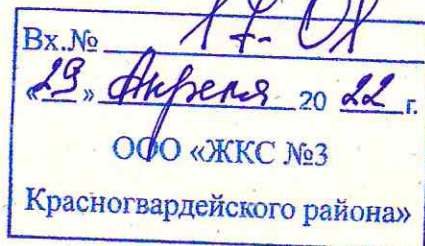 Вх.№ 17-01
«29» Апреля 20 22 г.
ООО «ЖКС №3
Красногвардейского района»